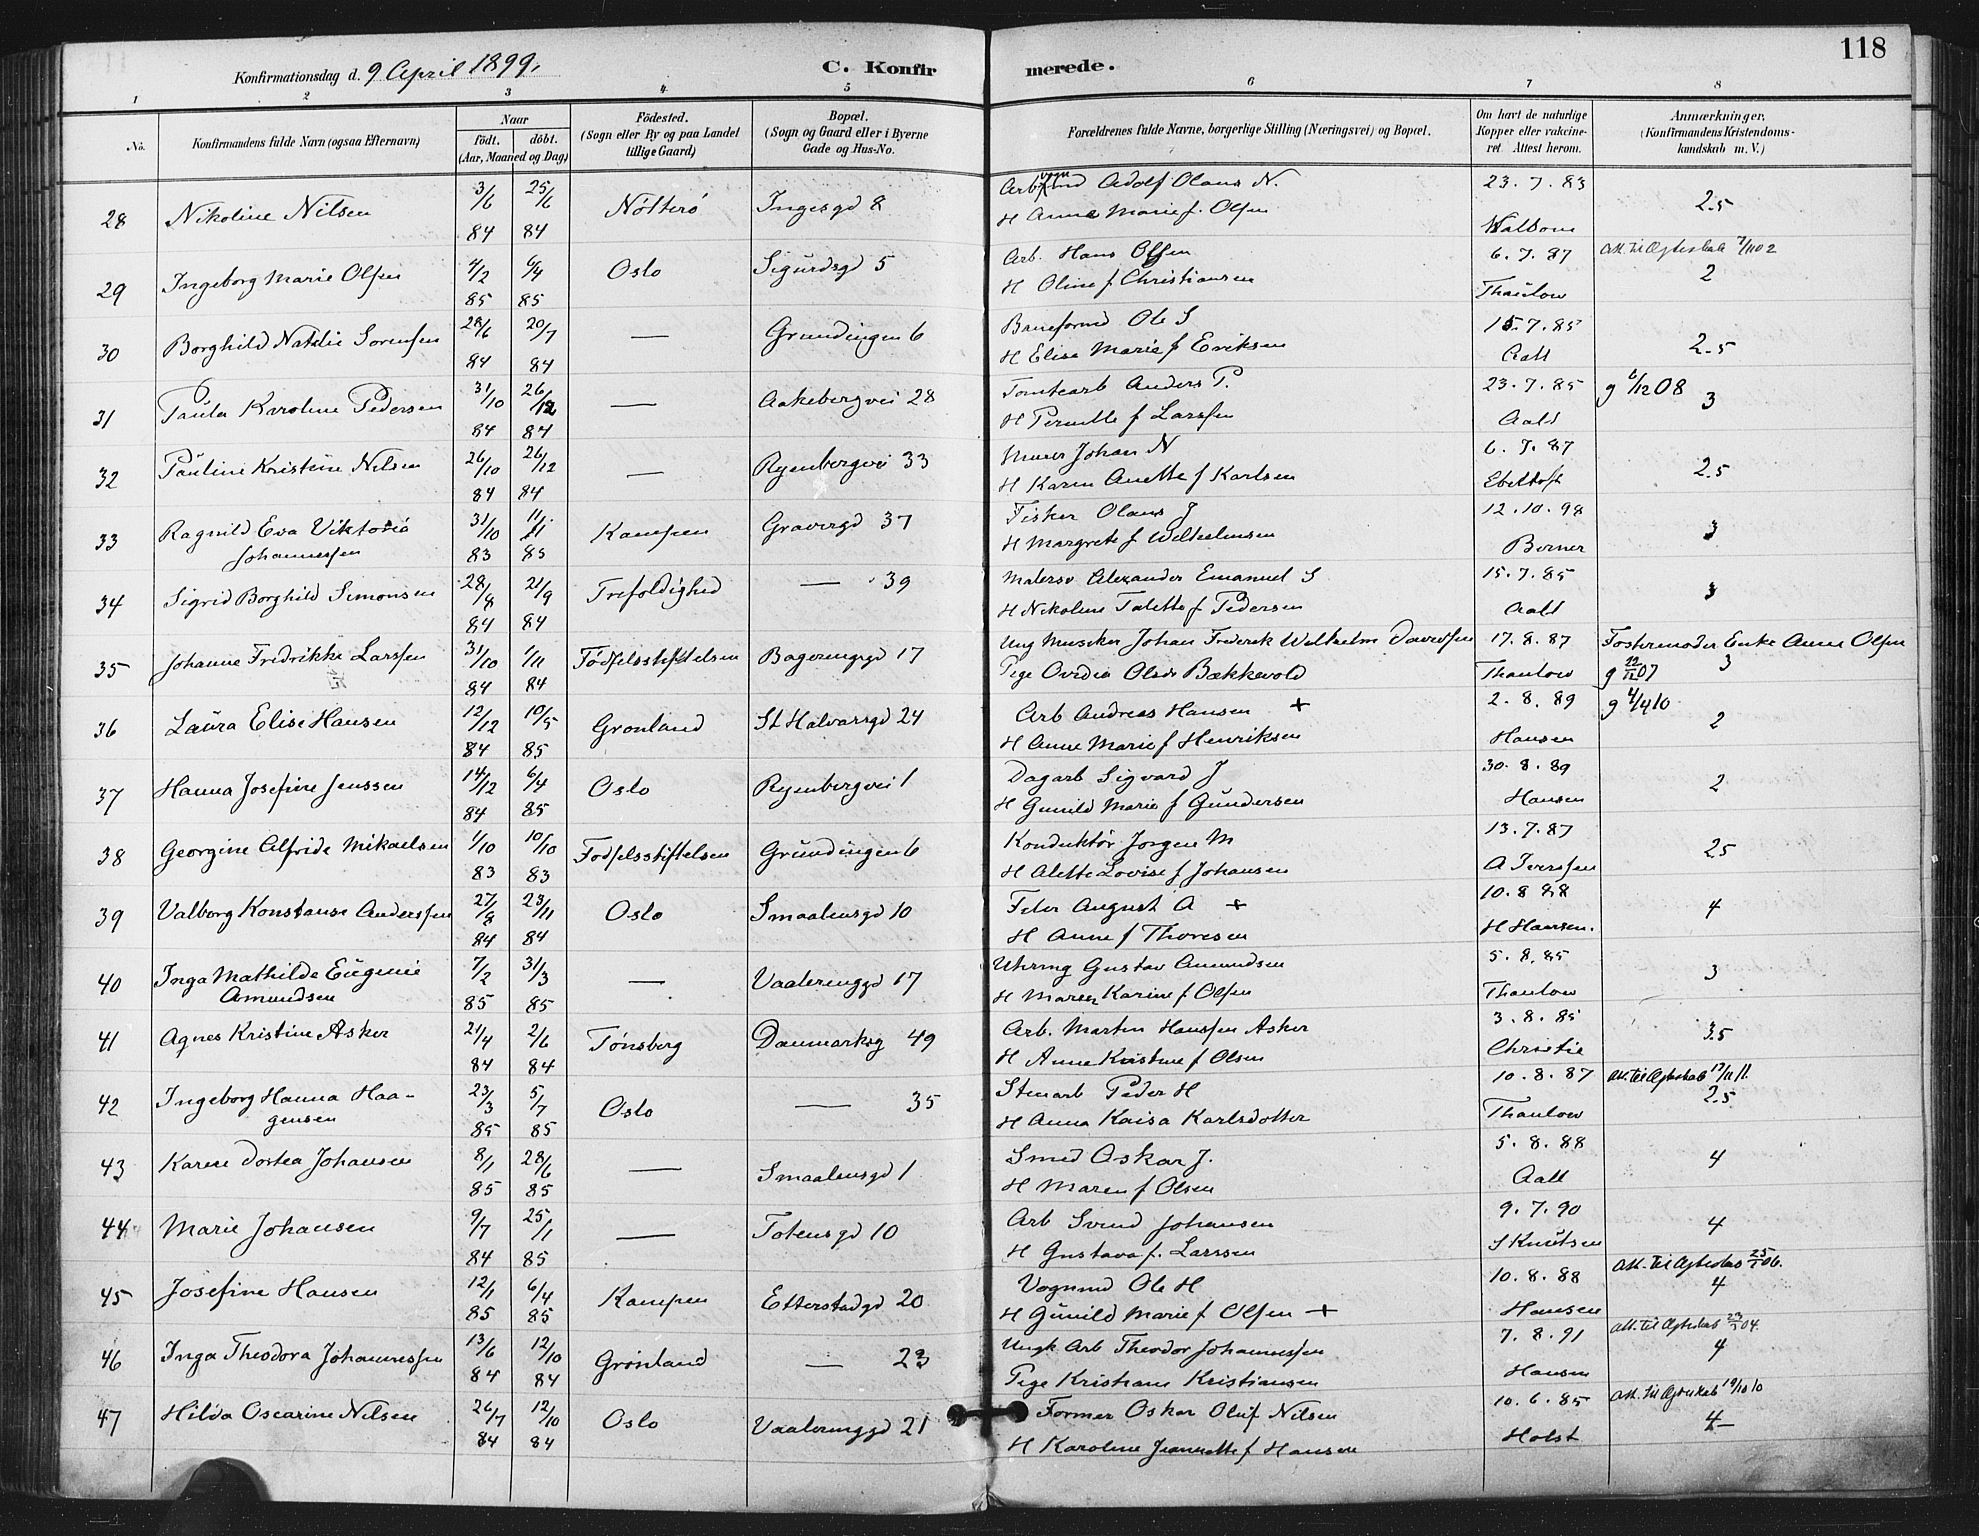 118
Konfirmationsdag d. 9 April 1899.
C. Konfir merede.
1 2 3 4 5 6 7 8
No. Konfirmandens fulde Navn (ogsaa Efternavn) Naar födt. döbt. (Aar, Maaned og Dag) Födested. (Sogn eller By og paa Landet tillige Gaard) Bopæl. (Sogn og Gaard eller i Byerne Gade og Hus-No. Forældrenes fulde Navne, borgerlige Stilling (Næringsvei) og Bopæl. Om havt de naturlige Kopper eller vakcineret. Attest herom. Anmærkninger. (Konfirmandens Kristendomskundskab m. V.)
28 Nikoline Nilsen 3/6 84 25/6 84 Nötterö Ingesgd 8 Adolf Olaus N. 23.7.83 2.5
H Anna Marie f. Olsen
29 Ingeborg Marie Olsen 4/2 85 6/4 85 Oslo Sigurdsgd 5 Arb. Hans Olsen 6.7.87 Att. til Ægteskab 7/1102
H Oline f Christiansen Thaulow 2
30 Borghild Natalie Sorensen 28/6 84 20/7 84 — Grundingen 6 Ole S 15.7.85 2.5
H Elise Marie f Eriksen Aall
31 Paula Karoline Pedersen 31/10 84 26/12 84 — Aakebergvei 28 Tomtearb Anders P. 23.7.85 g 6/12 08
H Pernille f Larssen Aall 3
32 Pauline Kristine Nilsen 26/10 84 26/12 84 — Ryenbergvei 33 Murer Johan N 6.7.87 2.5
H Karen Anette f Karlsen Ebeltoft
33 Ragnild Eva Viktoria Johannessen 31/10 83 11/11 83 Kampen Gravergd 37 Fisker Olaus J 12.10.98 3
H Margrete f Wilhelmsen Berner
34 Sigrid Borghild Simonsen 28/8 84 21/9 84 Trefoldighed — 39 Malersv Alexander Emanuel S 15.7.85 3
H Nikoline Talette f Pedersen Aall
35 Johanne Fredrikke Larssen 31/10 84 1/11 84 Födselsstiftelsen 17 Ung Musiker Johan Frederik Wilhelm Davidsen 17.8.87 Fostermoder Enke Anne Olsen
Pige Ovidia Olsdr Bækkevold Thaulow g 22/12 07 3
36 Laura Elise Hansen 12/12 84 10/5 85 Gronland St Halvarsgd 24 Arb Andreas Hansen + 2.8.89 g 4/4 10
H Anne Marie f Henriksen Hansen 2
37 Hanna Josefine Jenssen 14/12 84 6/4 85 Oslo Ryenbergvei 1 Dagarb Sigvard J 30.8.89 2
H Gunild Marie f Gundersen Hansen
38 Georgine Alfride Mikaelsen 1/10 83 10/10 83 Fodselsstiftelsen Grundingen 6 Konduktör Jorgen M 13.7.87 2.5
H Alette Lovise f Johansen A Iverssen
39 Valborg Konstanse Anderssen 27/8 84 23/11 84 Oslo Smaalensgd 10 August A + 10.8.88 4
H Anne f Thoresen H Hansen.
40 Inga Mathilde Eugenie Amundsen 7/2 85 31/3 85 — Vaalerenggd 17 Uhrmg Gustav Amundsen 5.8.85 3
H Maren Karine f Olsen Thaulow
41 Agnes Kristine Asker 21/4 84 2/6 84 Tönsberg Danmarksg 49 Arb. Martin Hanssen Asker 3.8.85 3.5
H Anne Kristine f Olsen Christie
42 Ingeborg Hanna Haagensen 23/3 85 5/7 85 Oslo — 35 Stenarb Peder H 10.8.87 Att. til Ægteskab 17/11 11.
H Anna Kaisa Karlsdotter Thaulow 2.5
43 Karen Dortea Johansen 8/1 85 28/6 85 — Smaalensgd 1 Smed Oskar J. 5.8.88 4
H Maren f Olsen Aall
44 Marie Johansen 9/7 84 25/1 85 — Totensgd 10 Arb Svend Johansen 9.7.90 4
H Gustava f. Larssen S Knutsen
45 Josefine Hansen 12/1 85 6/4 85 Kampen Etterstadgd 20 Vognmd Ole H 10.8.88 Att. til Ægteskab 25/5 06.
H Gunild Marie f Olsen + Hansen 4
46 Inga Theodora Johannessen 13/6 84 12/10 84 Grönland — 23 Ungk Arb Theodor Johannessen 7.8.91 Att. til Ægteskab 23/3 04.
Pige Kristiane Kristiansen Hansen 4
47 Hilda Oscarine Nilsen 26/7 84 12/10 84 Oslo Vaalerenggd 21 Former Oskar Oluf Nilsen 10.6.85 Att. til Ægteskab 19/10 10
H Karoline Jeanette f Hansen Holst 4